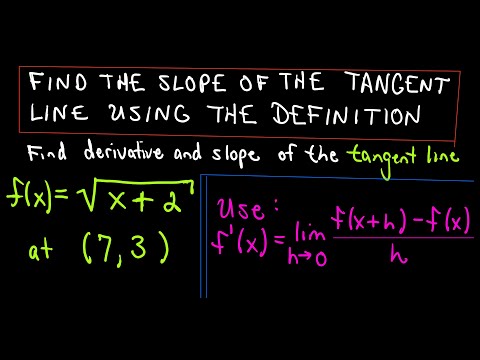 FIND THE SLOPE OF THE TANGENT
LINE USING THE DEFINITION
Find derivative and slope of the tangent line
f(x)= √x+2
at (7,3)
use:
f'(x)= lim h→0 f(x+h)-f(x) / h